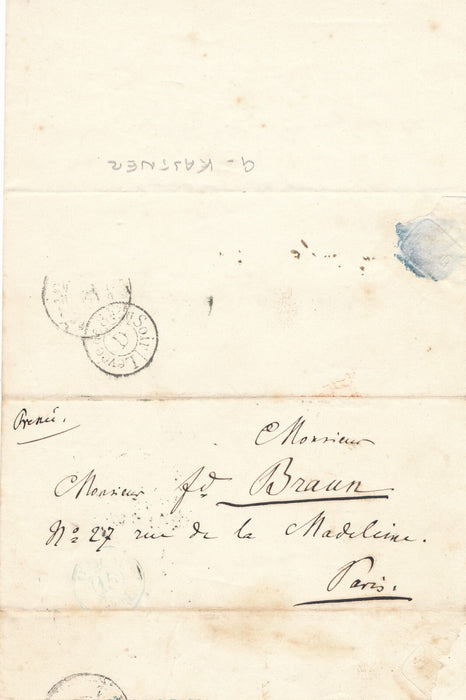 G. KASTNER
Levée
Monsieur
Monsieur fd Braun
No 27 rue de la Madeleine.
Paris.